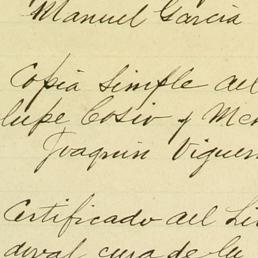 Manuel Garcia
Copia simple del
lupe Cosio y
Joaquin Viguer
Certificado del Li
doval, cura de la